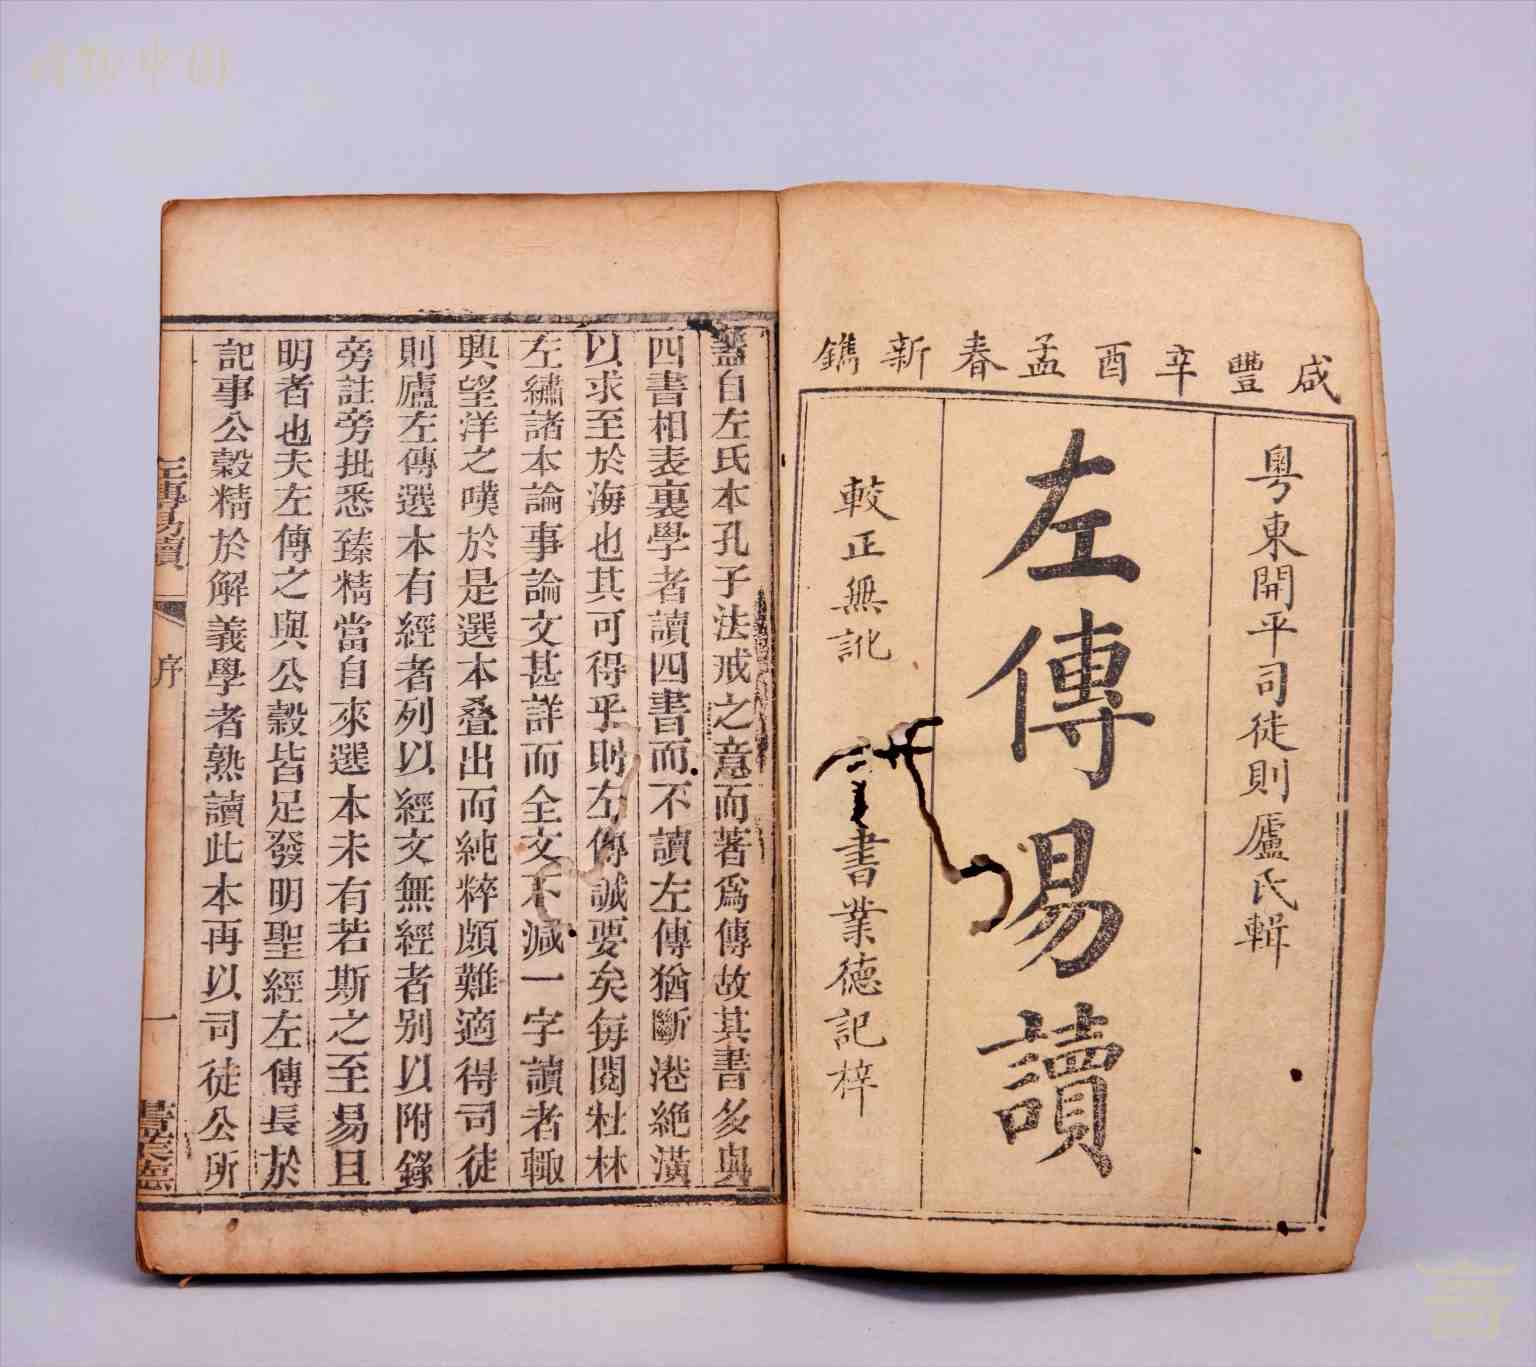 咸豐辛酉孟春新鐫
粤東開平司徒則廬氏輯
左傳易讀
較正無訛
書業德記梓
蓋自左氏本孔子法戒之意而著爲傳故其書多與
四書相表裏學者讀四書而不讀左傳猶斷港絶潢
以求至於海也其可得乎則左傳誠要矣每閱杜林
左繡諸本論事論文甚詳而全文不減一字讀者輙
興望洋之嘆於是選本叠出而純粹頗難適得司徒
則廬左傳選本有經者列以經文無經者别以附錄
旁註旁批悉臻精當自來選本未有若斯之至易且
明者也夫左傳之與公穀皆足發明聖經左傳長於
記事公穀精於解義學者熟讀此本再以司徒公所
左傳易讀
序
一